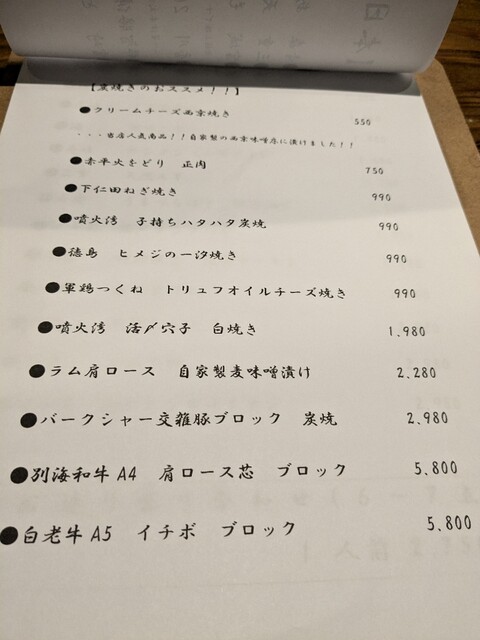 【炭焼きのおススメ！！】
●クリームチーズ西京焼き 550
・・・当店人気商品！！自家製の西京味噌床に漬けました！！
●赤平火をどり 正肉 750
●下仁田ねぎ焼き 990
●噴火湾 子持ちハタハタ炭焼 990
●徳島 ヒメジの一汐焼き 990
●軍鶏つくね トリュフオイルチーズ焼き 990
●噴火湾 活〆穴子 白焼き 1,980
●ラム肩ロース 自家製麦味噌漬け 2,280
●バークシャー交雑豚ブロック 炭焼 2,980
●別海和牛A4 肩ロース芯 ブロック 5,800
●白老牛A5 イチボ ブロック 5,800